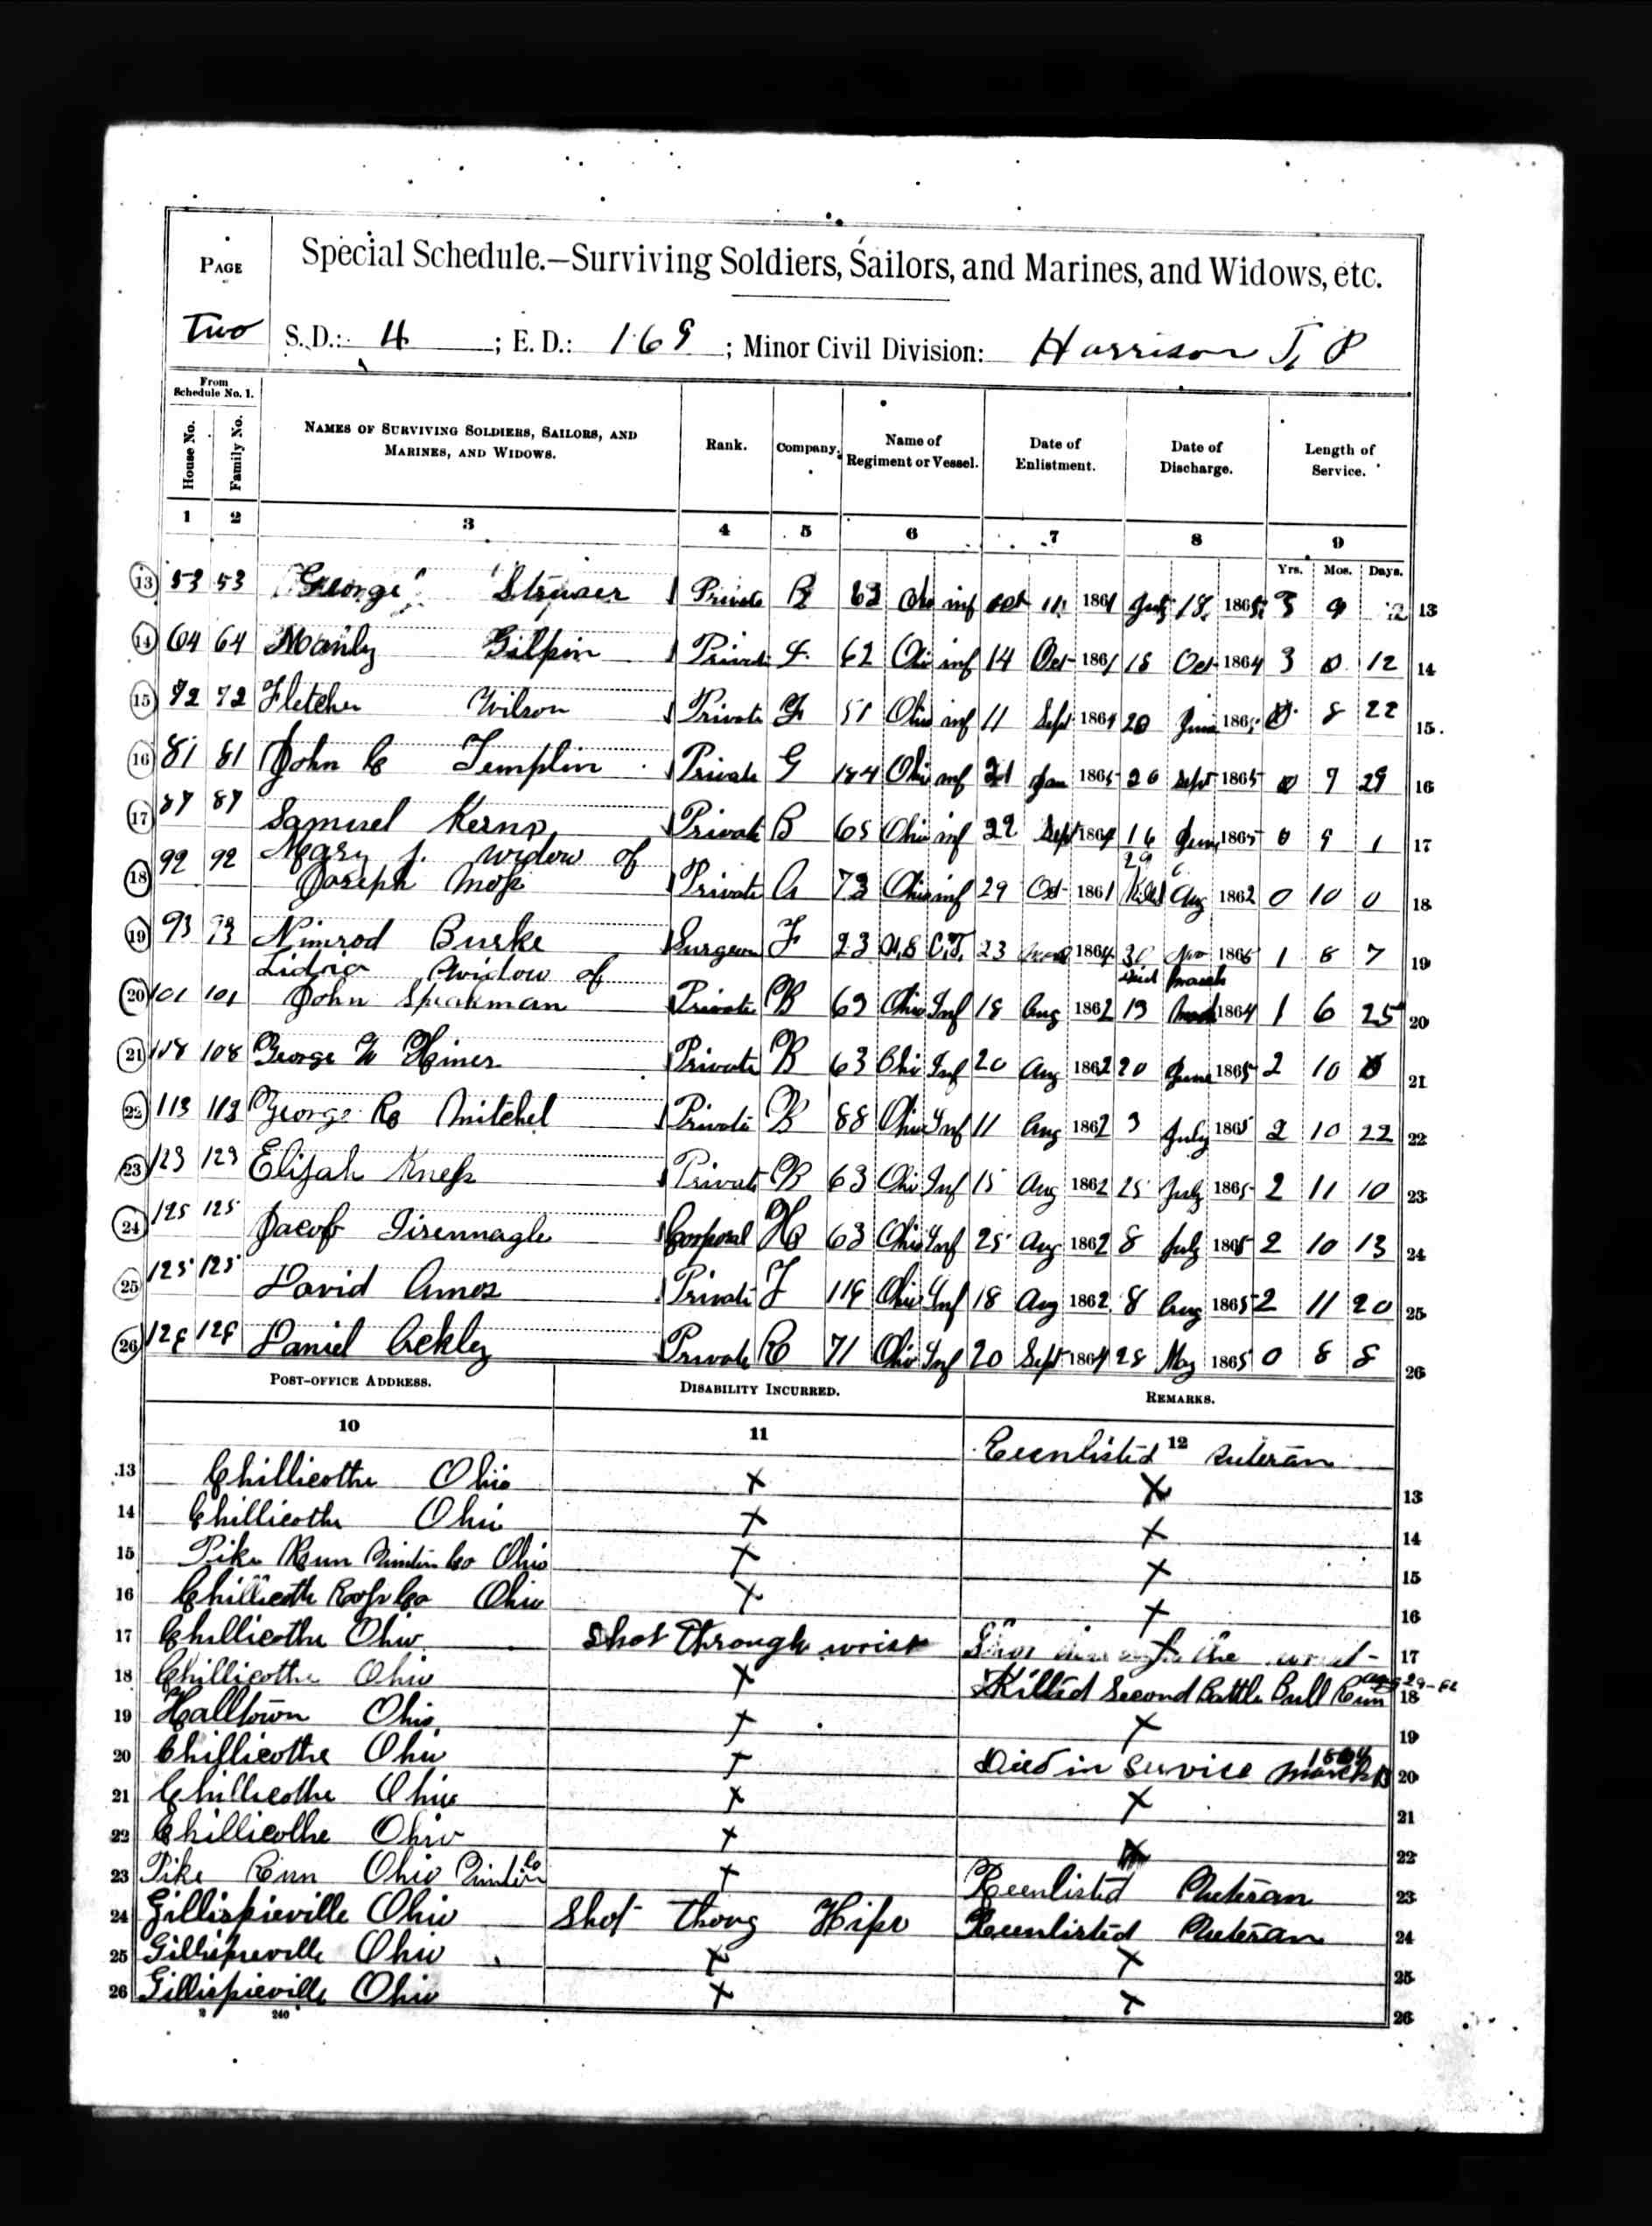 PAGE
Two
Special Schedule.—Surviving Soldiers, Sailors, and Marines, and Widows, etc.
S. D.: 4 ; E. D.: 169 ; Minor Civil Division: Harrison T. P
From Schedule No. 1.
House No. Family No. NAMES OF SURVIVING SOLDIERS, SAILORS, AND MARINES, AND WIDOWS. Rank. Company. Name of Regiment or Vessel. Date of Enlistment. Date of Discharge. Length of Service.
1 2 3 4 5 6 7 8 9
Yrs. Mos. Days.
13 53 53 George Private B 63 Ohio inf Oct 11 1861 July 18 1865 3 9 13
14 64 64 Manly Gilpin Private 62 Ohio inf 14 Oct 1861 Oct 1864 3 0 12 14
15 72 72 Fletcher Wilson Private 51 Ohio inf 11 Sept 1864 20 June 186 0 8 22 15
16 81 81 John C Templin Private G 184 Ohio inf 21 Jan 1865 20 Sept 1865 0 7 29 16
17 87 87 Samuel Kerns Private B 65 Ohio inf 22 Sept 1864 16 June 1865 0 9 1 17
18 92 92 Mary J. widow of
Joseph Moss Private A 73 Ohio inf 29 Oct 1861 29 Killed Aug 1862 0 10 0 18
19 93 93 Nimrod Burke Surgeon F 23 U.S C.T. 23 1864 30 Nov 1865 1 8 7 19
20 101 101 Lidia widow of
John Speakman Private B 63 Ohio Inf 18 Aug 1862 Died March 13 1864 1 6 25 20
21 108 108 George W Hiner Private B 63 Ohio Inf 20 Aug 1862 20 June 1865 2 10 0 21
22 113 113 George C Mitchel Private B 88 Ohio Inf 11 Aug 1862 3 July 1865 2 10 22 22
23 123 123 Elijah Kness Private B 63 Ohio Inf 15 Aug 1862 25 July 1865 2 11 10 23
24 125 125 Jacob Private Corporal H 63 Ohio Inf 25 Aug 1862 8 July 1865 2 10 13 24
25 125 125 David Amos Private Ohio Inf 18 Aug 1862 8 Aug 1865 2 11 20 25
26 128 128 Daniel Ackley Private C 71 Ohio Inf 20 Sept 1864 28 May 1865 0 8 8 26
POST-OFFICE ADDRESS. DISABILITY INCURRED. REMARKS.
10 11 12
13 Chillicothe Ohio x Reenlisted Veteran x 13
14 Chillicothe Ohio x x 14
15 Pike Run Vinton Co Ohio x x 15
16 Chillicothe Ross Co Ohio x x 16
17 Chillicothe Ohio Shot through wrist Shot through the wrist 17
18 Chillicothe Ohio x Killed Second Battle Bull Run Aug 29-62 18
19 Halltown Ohio x x 19
20 Chillicothe Ohio x Died in Service March 13 1864 20
21 Chillicothe Ohio x x 21
22 Chillicothe Ohio x x 22
23 Pike Run Ohio Vinton Co x Reenlisted Veteran 23
24 Gillispieville Ohio Shot Thoug Hips Reenlisted Veteran 24
25 Gillispieville Ohio x x 25
26 Gillispieville Ohio x x 26
240